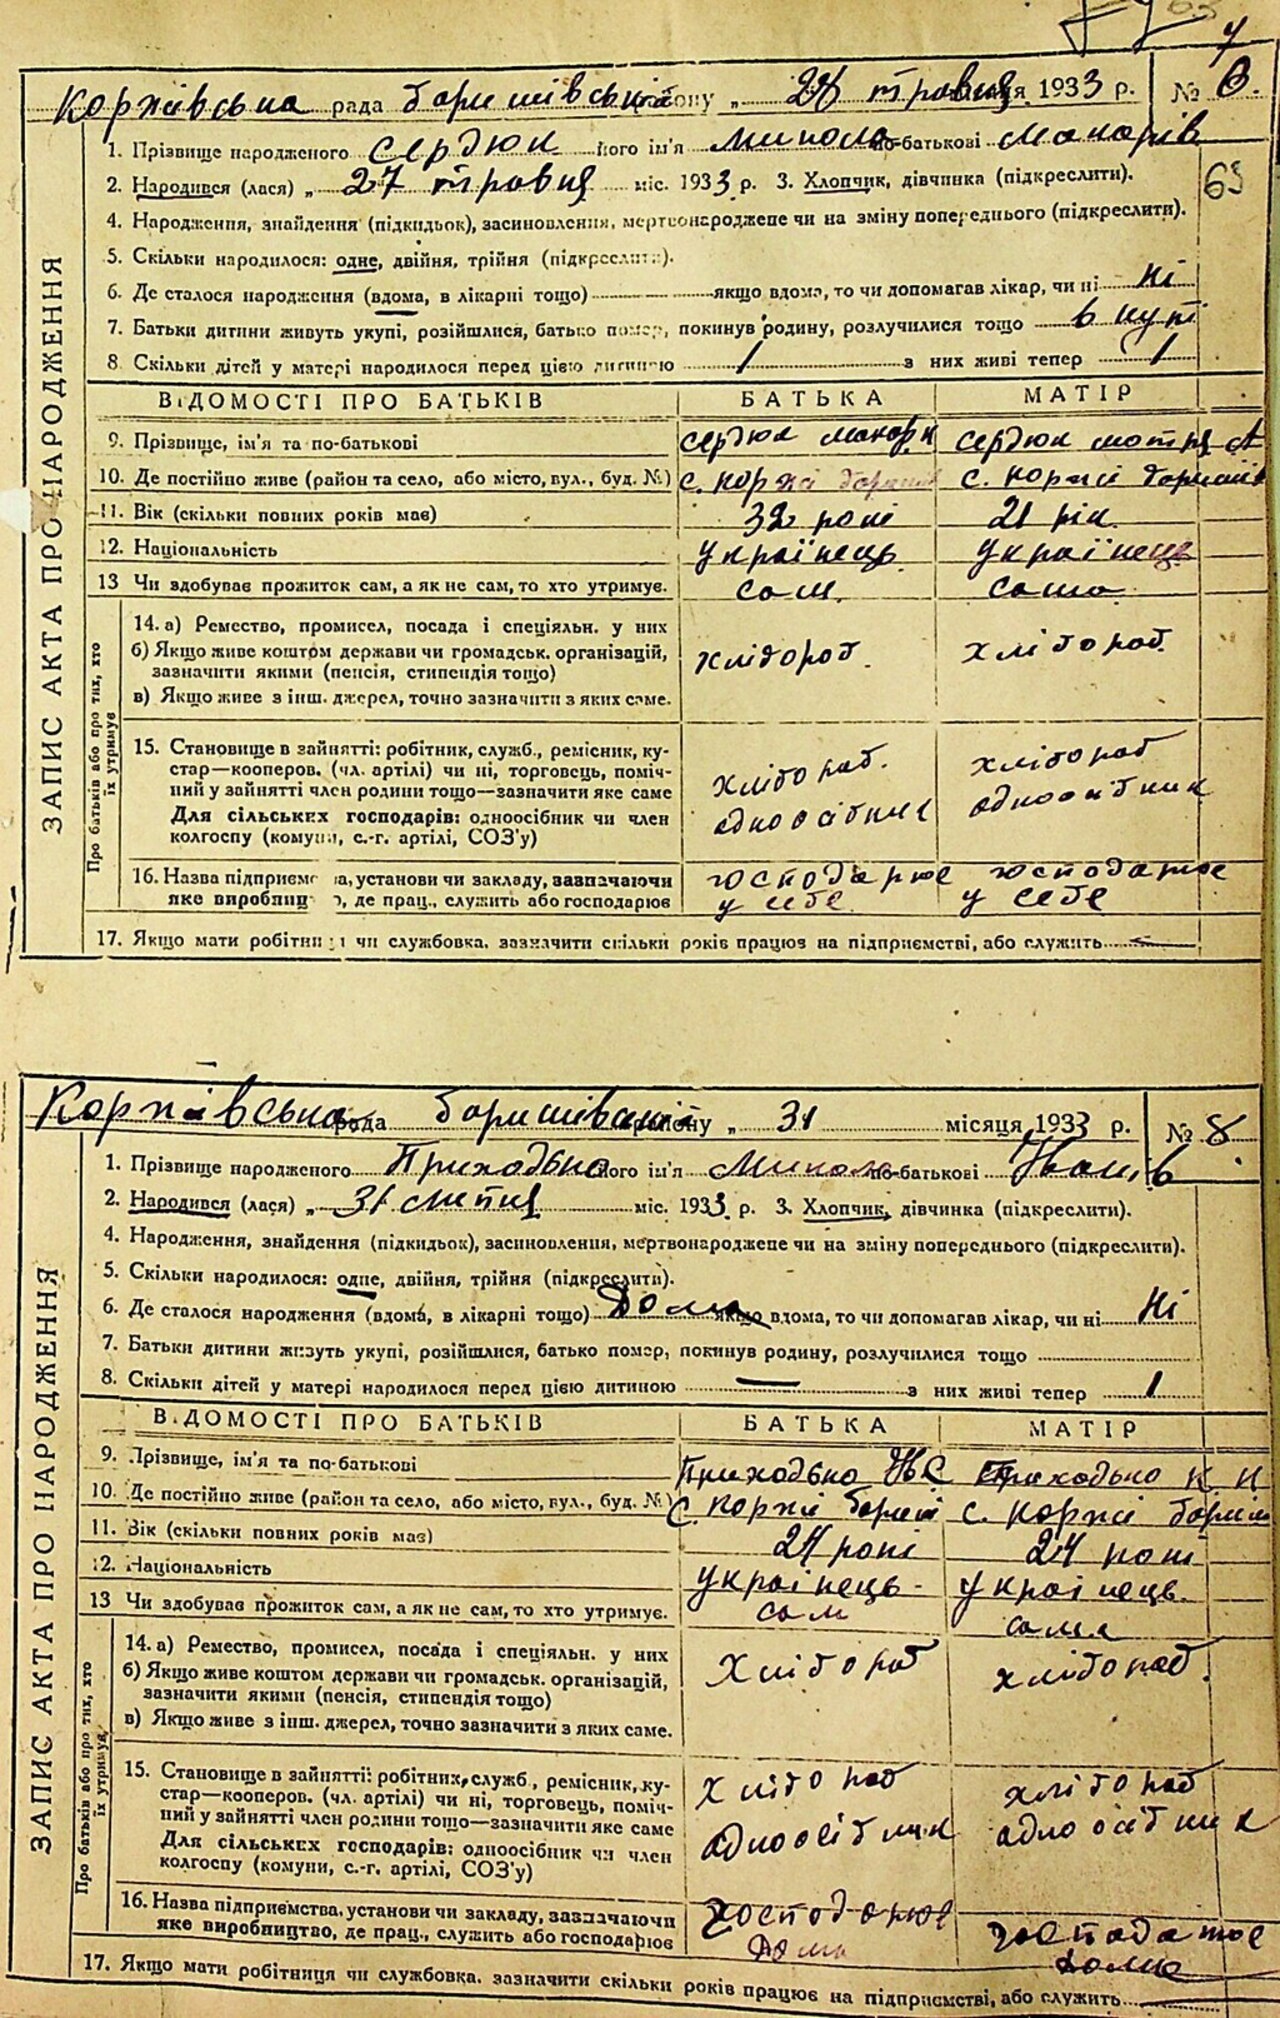 7
Коржівська рада баришівська району „ 28 травня місяця 1933 р. № 6.
1. Прізвище народженого Сердюк його ім'я Микола по-батькові Макарів
2. Народився (лася) „ 27 травня міс. 1933 р. 3. Хлопчик, дівчинка (підкреслити).
69
4. Народження, знайдення (підкидьок), засиновлення, мертвонароджене чи на зміну попереднього (підкреслити).
5. Скільки народилося: одне, двійня, трійня (підкреслити).
6. Де сталося народження (вдома, в лікарні тощо) якщо вдома, то чи допомагав лікар, чи ні ні
7. Батьки дитини живуть укупі, розійшлися, батько помер, покинув родину, розлучилися тощо в купі
8 Скільки дітей у матері народилося перед цією дитиною 1 з них живі тепер 1
ВІДОМОСТІ ПРО БАТЬКІВ БАТЬКА МАТІР
9. Прізвище, ім'я та по-батькові Сердюк Макар Сердюк Мотря
10. Де постійно живе (район та село, або місто, вул., буд. №) с. Коржі с. Коржі
11. Вік (скільки повних років має) 32 років 21 рік
12. Національність українець українець
13 Чи здобуває прожиток сам, а як не сам, то хто утримує. сам. сама
14. а) Ремество, промисел, посада і спеціяльн. у них хлібороб. хлібороб.
б) Якщо живе коштом держави чи громадськ. організацій,
зазначити якими (пенсія, стипендія тощо)
в) Якщо живе з інш. джерел, точно зазначити з яких саме.
15. Становище в зайнятті: робітник, служб., ремісник, ку-
стар—кооперов. (чл. артілі) чи ні, торговець, поміч-
ний у зайнятті член родини тощо—зазначити яке саме хлібороб. хлібороб
Для сільських господарів: одноосібник чи член
колгоспу (комуни, с.-г. артілі, СОЗ'у) одноосібник одноосібник
16. Назва підприємства, установи чи закладу, зазначаючи господарює господарює
яке виробництво, де прац., служить або господарює у себе у себе
17. Якщо мати робітниця чи службовка, зазначити скільки років працює на підприємстві, або служить
ЗАПИС АКТА ПРО НАРОДЖЕННЯ
Про батьків або про тих, хто їх утримує
Коржівська рада баришівський району „ 31 місяця 1933 р. № 8.
1. Прізвище народженого Приходько його ім'я Микола по-батькові Іванів
2. Народився (лася) „ 31 липня міс. 1933 р. 3. Хлопчик, дівчинка (підкреслити).
4. Народження, знайдення (підкидьок), засиновлення, мертвонароджене чи на зміну попереднього (підкреслити).
5. Скільки народилося: одне, двійня, трійня (підкреслити).
6. Де сталося народження (вдома, в лікарні тощо) Дома якщо вдома, то чи допомагав лікар, чи ні ні
7. Батьки дитини живуть укупі, розійшлися, батько помер, покинув родину, розлучилися тощо
8. Скільки дітей у матері народилося перед цією дитиною — з них живі тепер 1
ВІДОМОСТІ ПРО БАТЬКІВ БАТЬКА МАТІР
9. Прізвище, ім'я та по-батькові Приходько Ів С Приходько К. Н
10. Де постійно живе (район та село, або місто, вул., буд. №) с. Коржі Бориш с. Коржі Бориш
11. Вік (скільки повних років має) 24 роки 24 роки
12. Національність українець українець.
13 Чи здобуває прожиток сам, а як не сам, то хто утримує. сам сама
14. а) Ремество, промисел, посада і спеціяльн. у них хлібороб хлібороб.
б) Якщо живе коштом держави чи громадськ. організацій,
зазначити якими (пенсія, стипендія тощо)
в) Якщо живе з інш. джерел, точно зазначити з яких саме.
15. Становище в зайнятті: робітник, служб., ремісник, ку-
стар—кооперов. (чл. артілі) чи ні, торговець, поміч- хлібороб хлібороб
ний у зайнятті член родини тощо—зазначити яке саме
Для сільських господарів: одноосібник чи член одноосібник одноосібник
колгоспу (комуни, с.-г. артілі, СОЗ'у)
16. Назва підприємства, установи чи закладу, зазначаючи господарює господарює
яке виробництво, де прац., служить або господарює Дома Дома
17. Якщо мати робітниця чи службовка, зазначити скільки років працює на підприємстві, або служить
ЗАПИС АКТА ПРО НАРОДЖЕННЯ
Про батьків або про тих, хто їх утримує